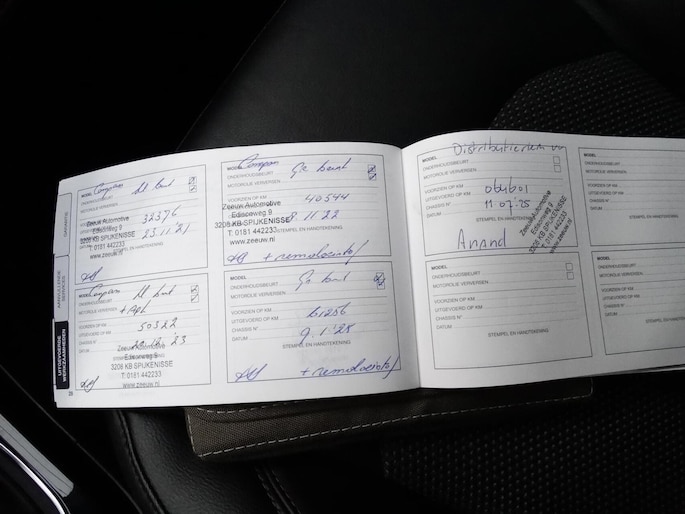 GARANTIE
AANVULLENDE SERVICES
UITGEVOERDE WERKZAAMHEDEN
MODEL Compass
ONDERHOUDSBEURT
MOTOROLIE VERVERSEN
VOORZIEN OP KM
UITGEVOERD OP KM 32376
DATUM 23.11.'21
STEMPEL EN HANDTEKENING
Zeeuw Automotive
Edisonweg 9
3208 KB SPIJKENISSE
T: 0181 442233
www.zeeuw.nl
MODEL Compass
ONDERHOUDSBEURT
MOTOROLIE VERVERSEN
VOORZIEN OP KM
UITGEVOERD OP KM 50322
CHASSIS N°
DATUM
Zeeuw Automotive
Edisonweg 9
3208 KB SPIJKENISSE
T: 0181 442233
www.zeeuw.nl
MODEL Compass Gr beurt
ONDERHOUDSBEURT
MOTOROLIE VERVERSEN
VOORZIEN OP KM
40544
11.22
STEMPEL EN HANDTEKENING
Zeeuw Automotive
Edisonweg 9
3208 KB SPIJKENISSE
T: 0181 442233
www.zeeuw.nl
+ remvloeistof
MODEL Gr beurt
ONDERHOUDSBEURT
MOTOROLIE VERVERSEN
VOORZIEN OP KM
UITGEVOERD OP KM 61256
CHASSIS N°
DATUM 9.1.'25
STEMPEL EN HANDTEKENING
+ remvloeistof
Distributieriem
MODEL
ONDERHOUDSBEURT
MOTOROLIE VERVERSEN
VOORZIEN OP KM
UITGEVOERD OP KM 064601
CHASSIS N°
DATUM 11.07.25
STEMPEL EN HANDTEKENING
Anand
Zeeuw Automotive
Edisonweg 9
3208 KB SPIJKENISSE
T: 0181 442233
www.zeeuw.nl
MODEL
ONDERHOUDSBEURT
MOTOROLIE VERVERSEN
VOORZIEN OP KM
UITGEVOERD OP KM
CHASSIS N°
DATUM
STEMPEL EN HANDTEKENING
MODEL
ONDERHOUDSBEURT
MOTOROLIE VERVERSEN
VOORZIEN OP KM
UITGEVOERD OP KM
CHASSIS N°
DATUM
MODEL
ONDERHOUDSBEURT
MOTOROLIE VERVERSEN
VOORZIEN OP KM
UITGEVOERD OP KM
CHASSIS N°
DATUM